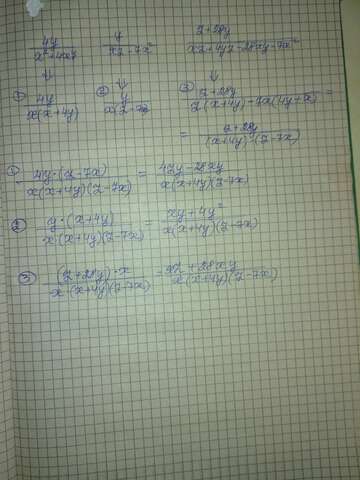 4y/(x²+4xy) y/(xz-7x²) (z+28y)/(xz+4yz-28xy-7x²)
⇓ ⇓ ⇓
① 4y/(x(x+4y)) ② y/(x(z-7x)) ③ (z+28y)/(z(x+4y)-7x(4y+x)) =
= (z+28y)/((x+4y)·(z-7x))
① 4y·(z-7x)/(x(x+4y)(z-7x)) = (4zy-28xy)/(x(x+4y)(z-7x))
② y·(x+4y)/(x(x+4y)(z-7x)) = (xy+4y²)/(x(x+4y)(z-7x))
③ (z+28y)·x/(x·(x+4y)(z-7x)) = (xz+28xy)/(x(x+4y)(z-7x))